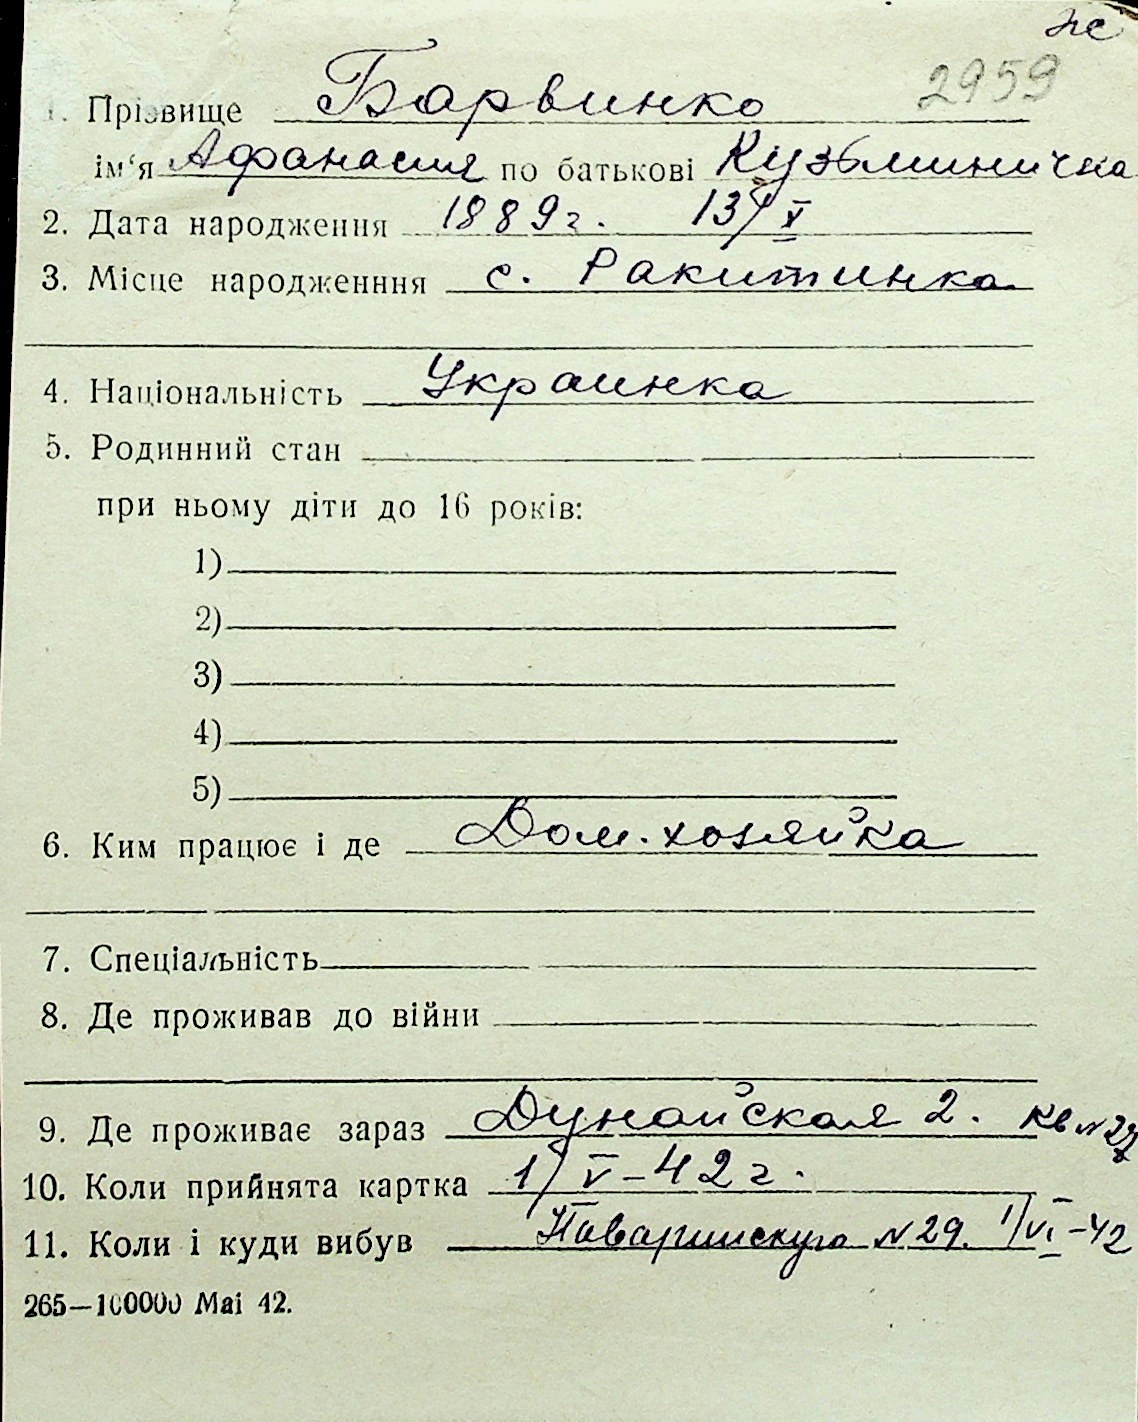 же
2959
1. Прізвище Барвинко
ім‘я Афанасия по батькові Кузьминична
2. Дата народження 1889 г. 13/X
3. Місце народженння с. Ракитинка
4. Національність Украинка
5. Родинний стан
при ньому діти до 16 років:
1)
2)
3)
4)
5)
6. Ким працює і де Дом. хозяйка
7. Спеціальність
8. Де проживав до війни
9. Де проживає зараз Дунайская 2. кв №
10. Коли прийнята картка 1/V-42 г.
11. Коли і куди вибув №29. 1/VI-42
265—100000 Mai 42.